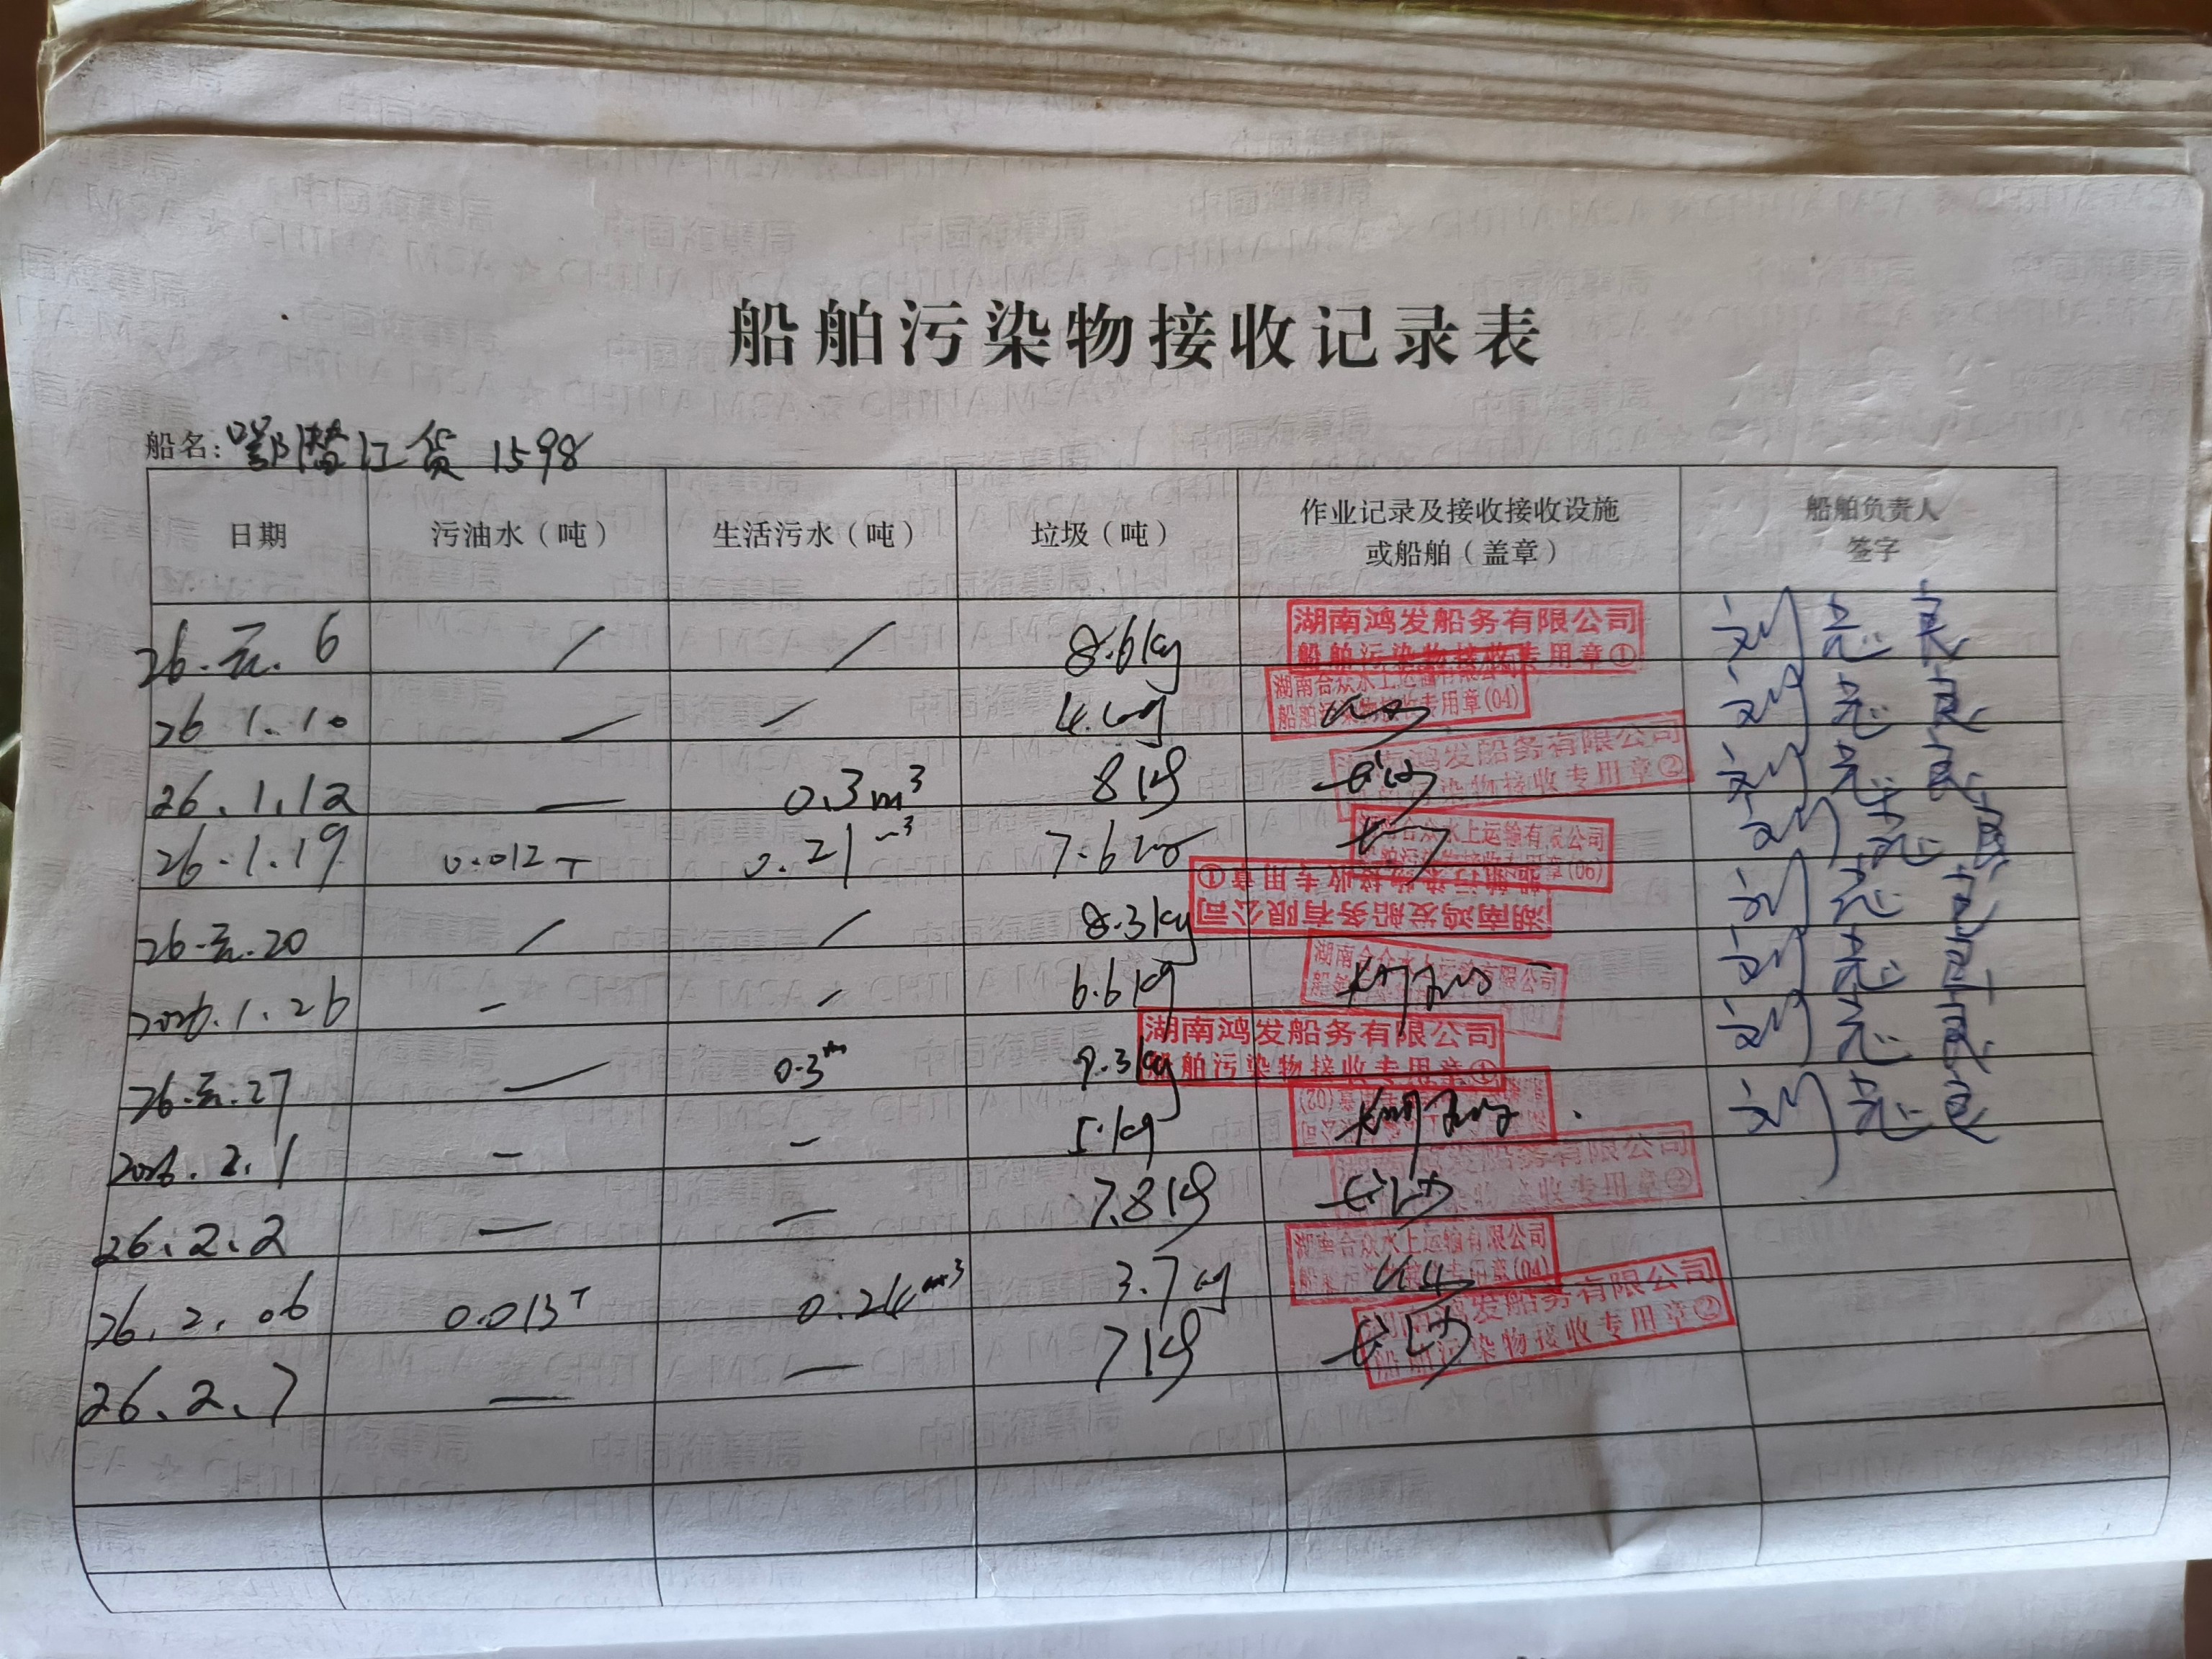 船舶污染物接收记录表
船名: 鄂潜江货 1598
日期 污油水（吨） 生活污水（吨） 垃圾（吨） 作业记录及接收接收设施或船舶（盖章） 船舶负责人签字
26.元.6 / / 8.6kg 湖南鸿发船务有限公司 船舶污染物接收专用章① 刘志良
26.1.10 — — 湖南合众水上运输有限公司 船舶污染物接收专用章(04) 刘志良
26.1.12 — 0.3m³ 8kg 湖南鸿发船务有限公司 船舶污染物接收专用章② 刘志良
26.1.19 0.012T 0.21m³ 7.6kg 湖南合众水上运输有限公司 船舶污染物接收专用章(06) 刘志良
26.元.20 / / 8.3kg 湖南鸿发船务有限公司 船舶污染物接收专用章① 刘志良
2026.1.26 — — 6.6kg 湖南合众水上运输有限公司 刘志良
26.元.27 — 0.3m 9.3kg 湖南鸿发船务有限公司 船舶污染物接收专用章① 刘志良
2026.2.1 — — 5.1kg (02) 刘志良
26.2.2 — — 7.8kg 长沙 湖南鸿发船务有限公司 船舶污染物接收专用章②
26.2.06 0.013T 0.24m³ 3.7kg 湖南合众水上运输有限公司 船舶污染物接收专用章(04)
26.2.7 — — 7kg 长沙 湖南鸿发船务有限公司 船舶污染物接收专用章②